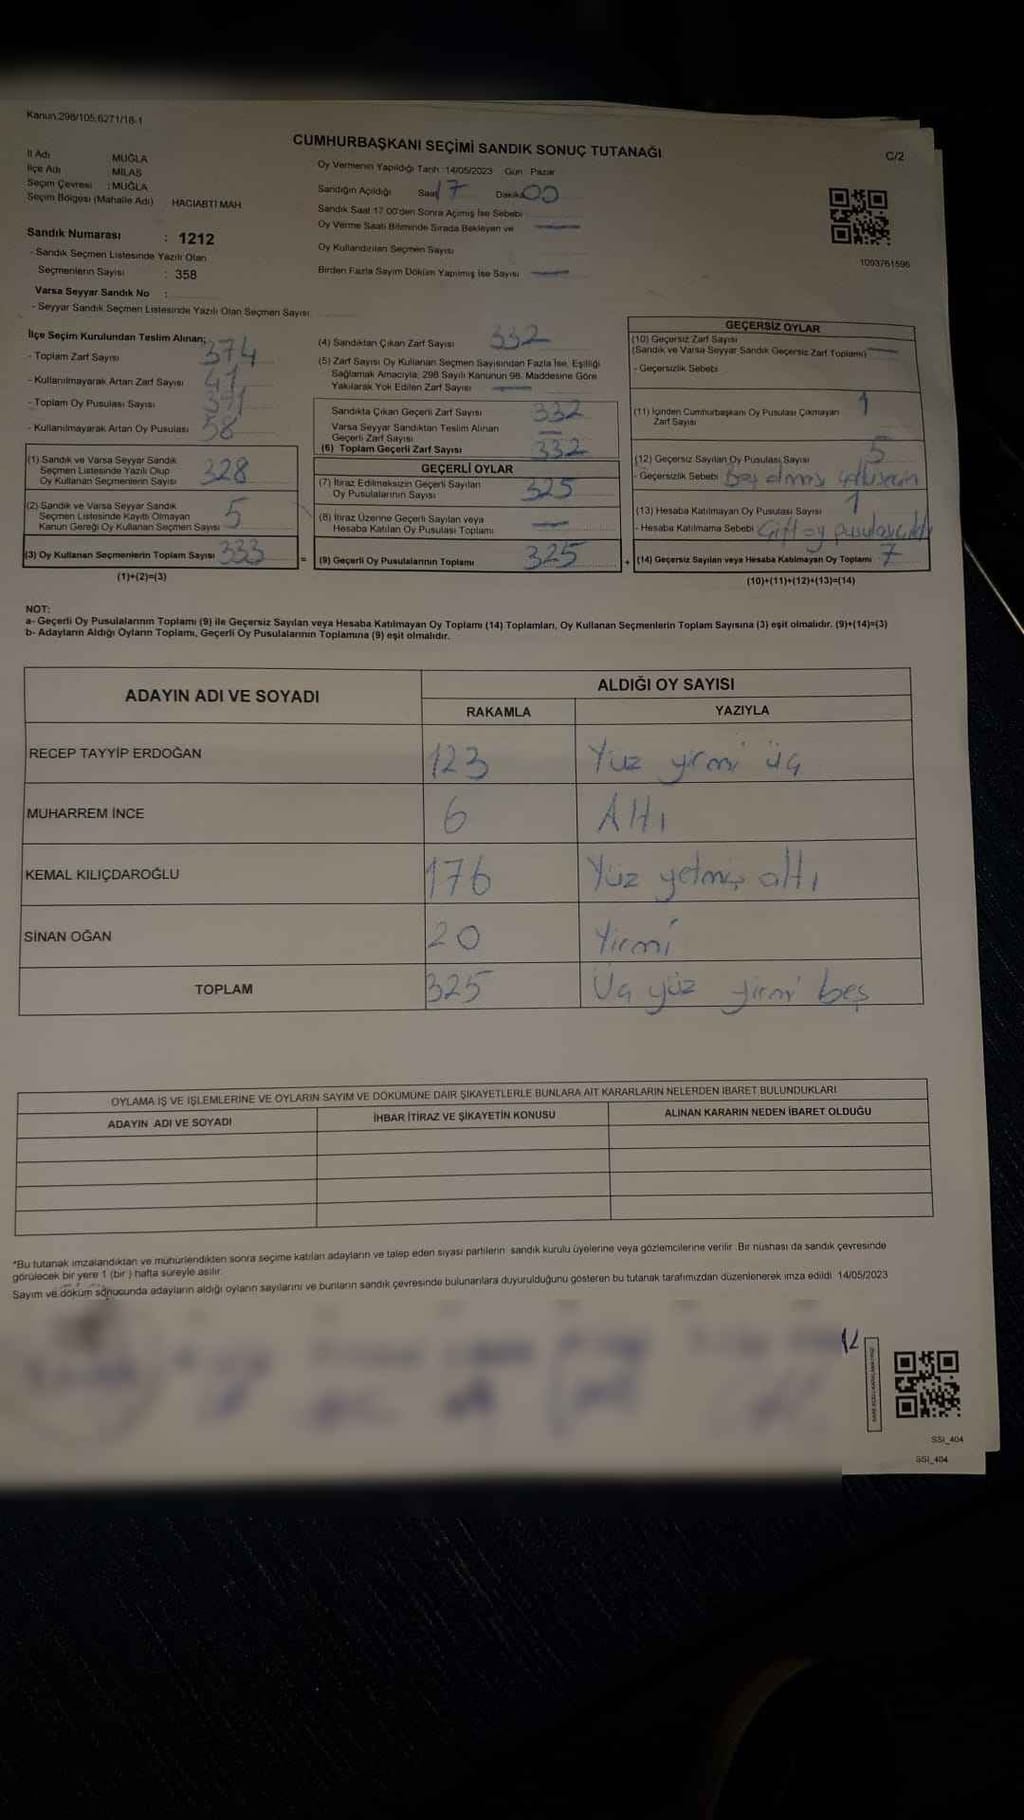 Kanun:298/105,6271/18-1
CUMHURBAŞKANI SEÇİMİ SANDIK SONUÇ TUTANAĞI
C/2
İl Adı MUĞLA
İlçe Adı MİLAS
Seçim Çevresi : MUĞLA
Seçim Bölgesi (Mahalle Adı) HACIABTİ MAH
Oy Vermenin Yapıldığı Tarih :14/05/2023 Gün Pazar
Sandığın Açıldığı Saat 17 Dakika 00
Sandık Saat 17.00'den Sonra Açımış İse Sebebi
Oy Verme Saati Bitiminde Sırada Bekleyen ve
Oy Kullandırılan Seçmen Sayısı
Birden Fazla Sayım Döküm Yapılmış İse Sayısı
1093761596
Sandık Numarası : 1212
- Sandık Seçmen Listesinde Yazılı Olan
Seçmenlerin Sayısı : 358
Varsa Seyyar Sandık No :
- Seyyar Sandık Seçmen Listesinde Yazılı Olan Seçmen Sayısı
İlçe Seçim Kurulundan Teslim Alınan;
- Toplam Zarf Sayısı 374
- Kullanılmayarak Artan Zarf Sayısı 41
- Toplam Oy Pusulası Sayısı
- Kullanılmayarak Artan Oy Pusulası 58
(1) Sandık ve Varsa Seyyar Sandık
Seçmen Listesinde Yazılı Olup
Oy Kullanan Seçmenlerin Sayısı 328
(2) Sandık ve Varsa Seyyar Sandık
Seçmen Listesinde Kayıtlı Olmayan
Kanun Gereği Oy Kullanan Seçmen Sayısı 5
(3) Oy Kullanan Seçmenlerin Toplam Sayısı 333
(1)+(2)=(3)
(4) Sandıktan Çıkan Zarf Sayısı 332
(5) Zarf Sayısı Oy Kullanan Seçmen Sayısından Fazla İse, Eşitliği
Sağlamak Amacıyla, 298 Sayılı Kanunun 98. Maddesine Göre
Yakılarak Yok Edilen Zarf Sayısı
Sandıkta Çıkan Geçerli Zarf Sayısı 332
Varsa Seyyar Sandıktan Teslim Alınan
Geçerli Zarf Sayısı
(6) Toplam Geçerli Zarf Sayısı 332
GEÇERLİ OYLAR
(7) İtiraz Edilmeksizin Geçerli Sayılan
Oy Pusulalarının Sayısı 325
(8) İtiraz Üzerine Geçerli Sayılan veya
Hesaba Katılan Oy Pusulası Toplamı
= (9) Geçerli Oy Pusulalarının Toplamı 325
GEÇERSİZ OYLAR
(10) Geçersiz Zarf Sayısı
(Sandık ve Varsa Seyyar Sandık Geçersiz Zarf Toplamı)
- Geçersizlik Sebebi
(11) İçinden Cumhurbaşkanı Oy Pusulası Çıkmayan 1
Zarf Sayısı
(12) Geçersiz Sayılan Oy Pusulası Sayısı 5
- Geçersizlik Sebebi
(13) Hesaba Katılmayan Oy Pusulası Sayısı 1
- Hesaba Katılmama Sebebi Çift oy pusulası
+ (14) Geçersiz Sayılan veya Hesaba Katılmayan Oy Toplamı 7
(10)+(11)+(12)+(13)=(14)
NOT:
a- Geçerli Oy Pusulalarının Toplamı (9) ile Geçersiz Sayılan veya Hesaba Katılmayan Oy Toplamı (14) Toplamları, Oy Kullanan Seçmenlerin Toplam Sayısına (3) eşit olmalıdır. (9)+(14)=(3)
b- Adayların Aldığı Oyların Toplamı, Geçerli Oy Pusulalarının Toplamına (9) eşit olmalıdır.
ADAYIN ADI VE SOYADI
ALDIĞI OY SAYISI
RAKAMLA YAZIYLA
RECEP TAYYİP ERDOĞAN 123 Yüz yirmi üç
MUHARREM İNCE 6 Altı
KEMAL KILIÇDAROĞLU 176 Yüz yetmiş altı
SİNAN OĞAN 20 Yirmi
TOPLAM 325 Üç yüz yirmi beş
OYLAMA İŞ VE İŞLEMLERİNE VE OYLARIN SAYIM VE DÖKÜMÜNE DAİR ŞİKAYETLERLE BUNLARA AİT KARARLARIN NELERDEN İBARET BULUNDUKLARI
ADAYIN ADI VE SOYADI İHBAR İTİRAZ VE ŞİKAYETİN KONUSU ALINAN KARARIN NEDEN İBARET OLDUĞU
*Bu tutanak imzalandıktan ve mühürlendikten sonra seçime katılan adayların ve talep eden siyasi partilerin sandık kurulu üyelerine veya gözlemcilerine verilir. Bir nüshası da sandık çevresinde
görülecek bir yere 1 (bir ) hafta süreyle asılır.
Sayım ve döküm sonucunda adayların aldığı oyların sayılarını ve bunların sandık çevresinde bulunanlara duyurulduğunu gösteren bu tutanak tarafımızdan düzenlenerek imza edildi. 14/05/2023
SSI_404
SSI_404